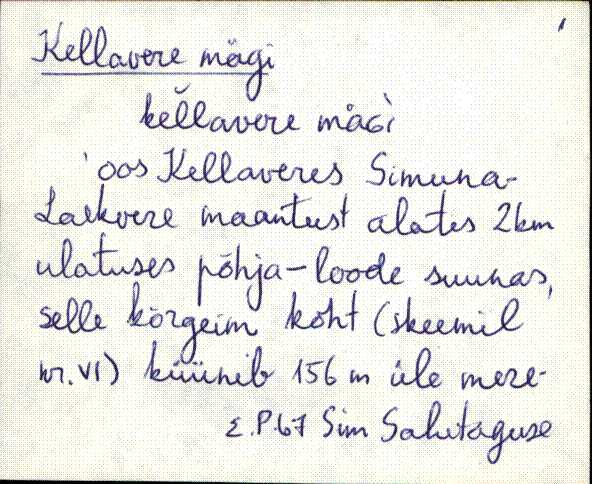 Kellavere mägi
kĕllavere mäGì
'oos Kellaveres Simuna-
Laekvere maanteest alates 2km
ulatuses põhja-loode suunas,
selle kõrgeim koht (skeemil
nr. VI) küünib 156 m üle mere-
E.P.67 Sim Salutaguse